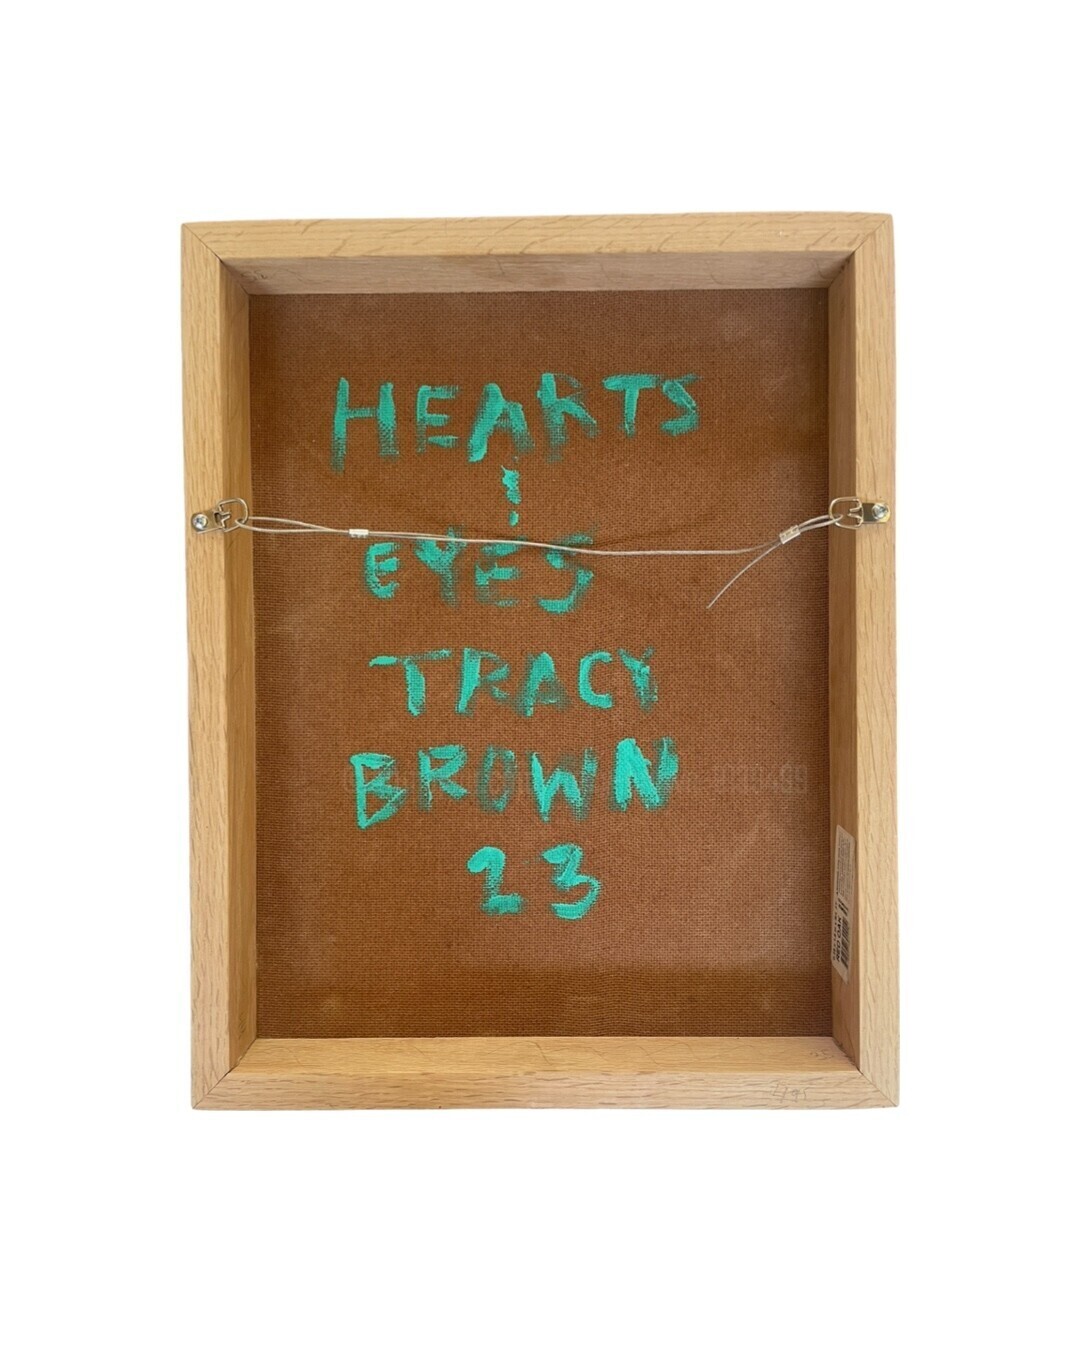 HEARTS
&
EYES
TRACY
BROWN
23